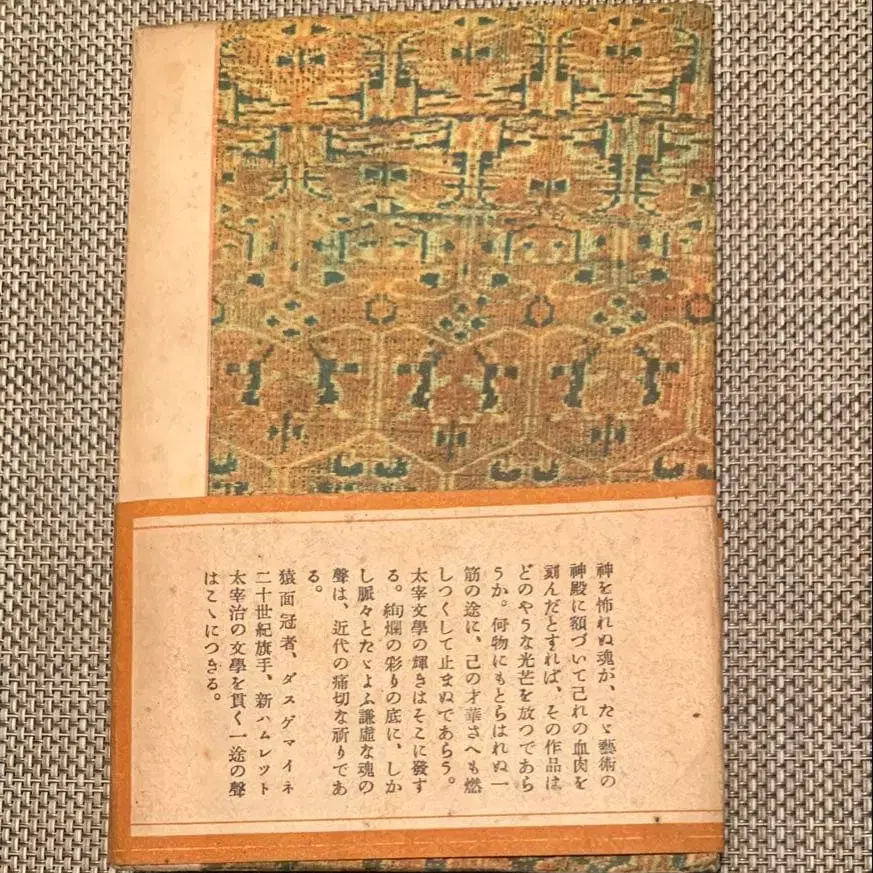 神を怖れぬ魂が、たゞ藝術の
神殿に額づいて己れの血肉を
刻んだとすれば、その作品は
どのやうな光芒を放つであら
うか。何物にもとらはれぬ一
筋の途に、己の才華さへも燃
しつくして止まぬであらう。
太宰文學の輝きはそこに發す
る。絢爛の彩りの底に、しか
し脈々とたゞよふ謙虚な魂の
聲は、近代の痛切な祈りであ
る。
猿面冠者、ダスゲマイネ
二十世紀旗手、新ハムレツト
太宰治の文學を貫く一途の聲
はこゝにつきる。